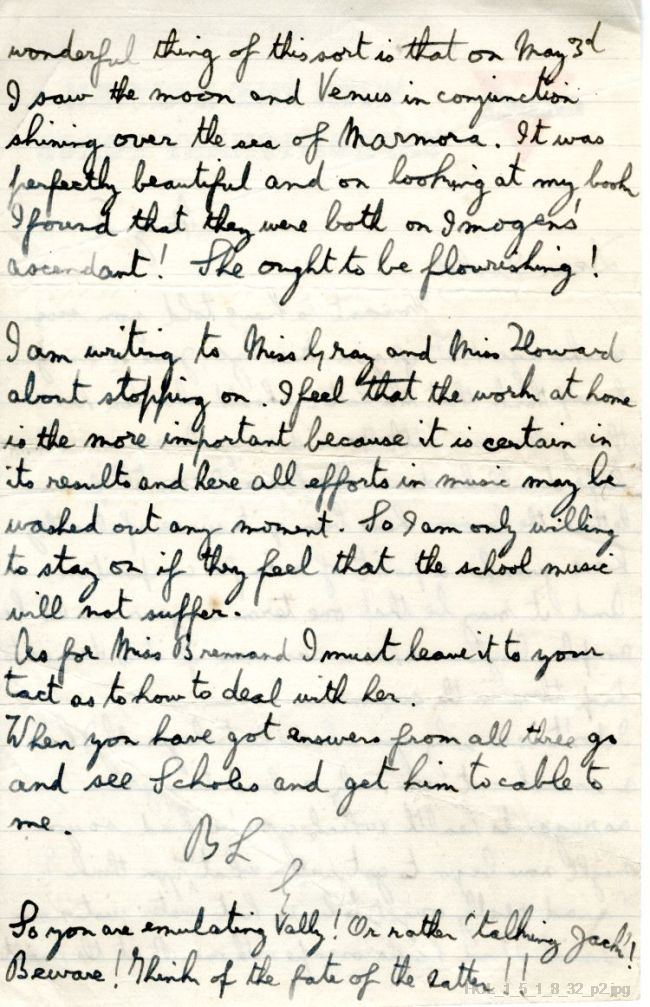 wonderful thing of this sort is that on May 3d
I saw the moon and Venus in conjunction
shining over the sea of Marmora. It was
perfectly beautiful and on looking at my book
I found that they were both on Imogen's
ascendant! She ought to be flourishing!
I am writing to Miss Gray and Miss Howard
about stopping on. I feel that the work at home
is the more important because it is certain in
its results and here all efforts in music may be
washed out any moment. So I am only willing
to stay on if they feel that the school music
will not suffer.
As for Miss Brennand I must leave it to your
tact as to how to deal with her.
When you have got answers from all three go
and see Scholes and get him to cable to
me.
BL
G
So you are emulating Vally! Or rather 'talking Jack'!
Beware! Think of the fate of the latter!!
HOL_1_5_1_8_32_p2.jpg